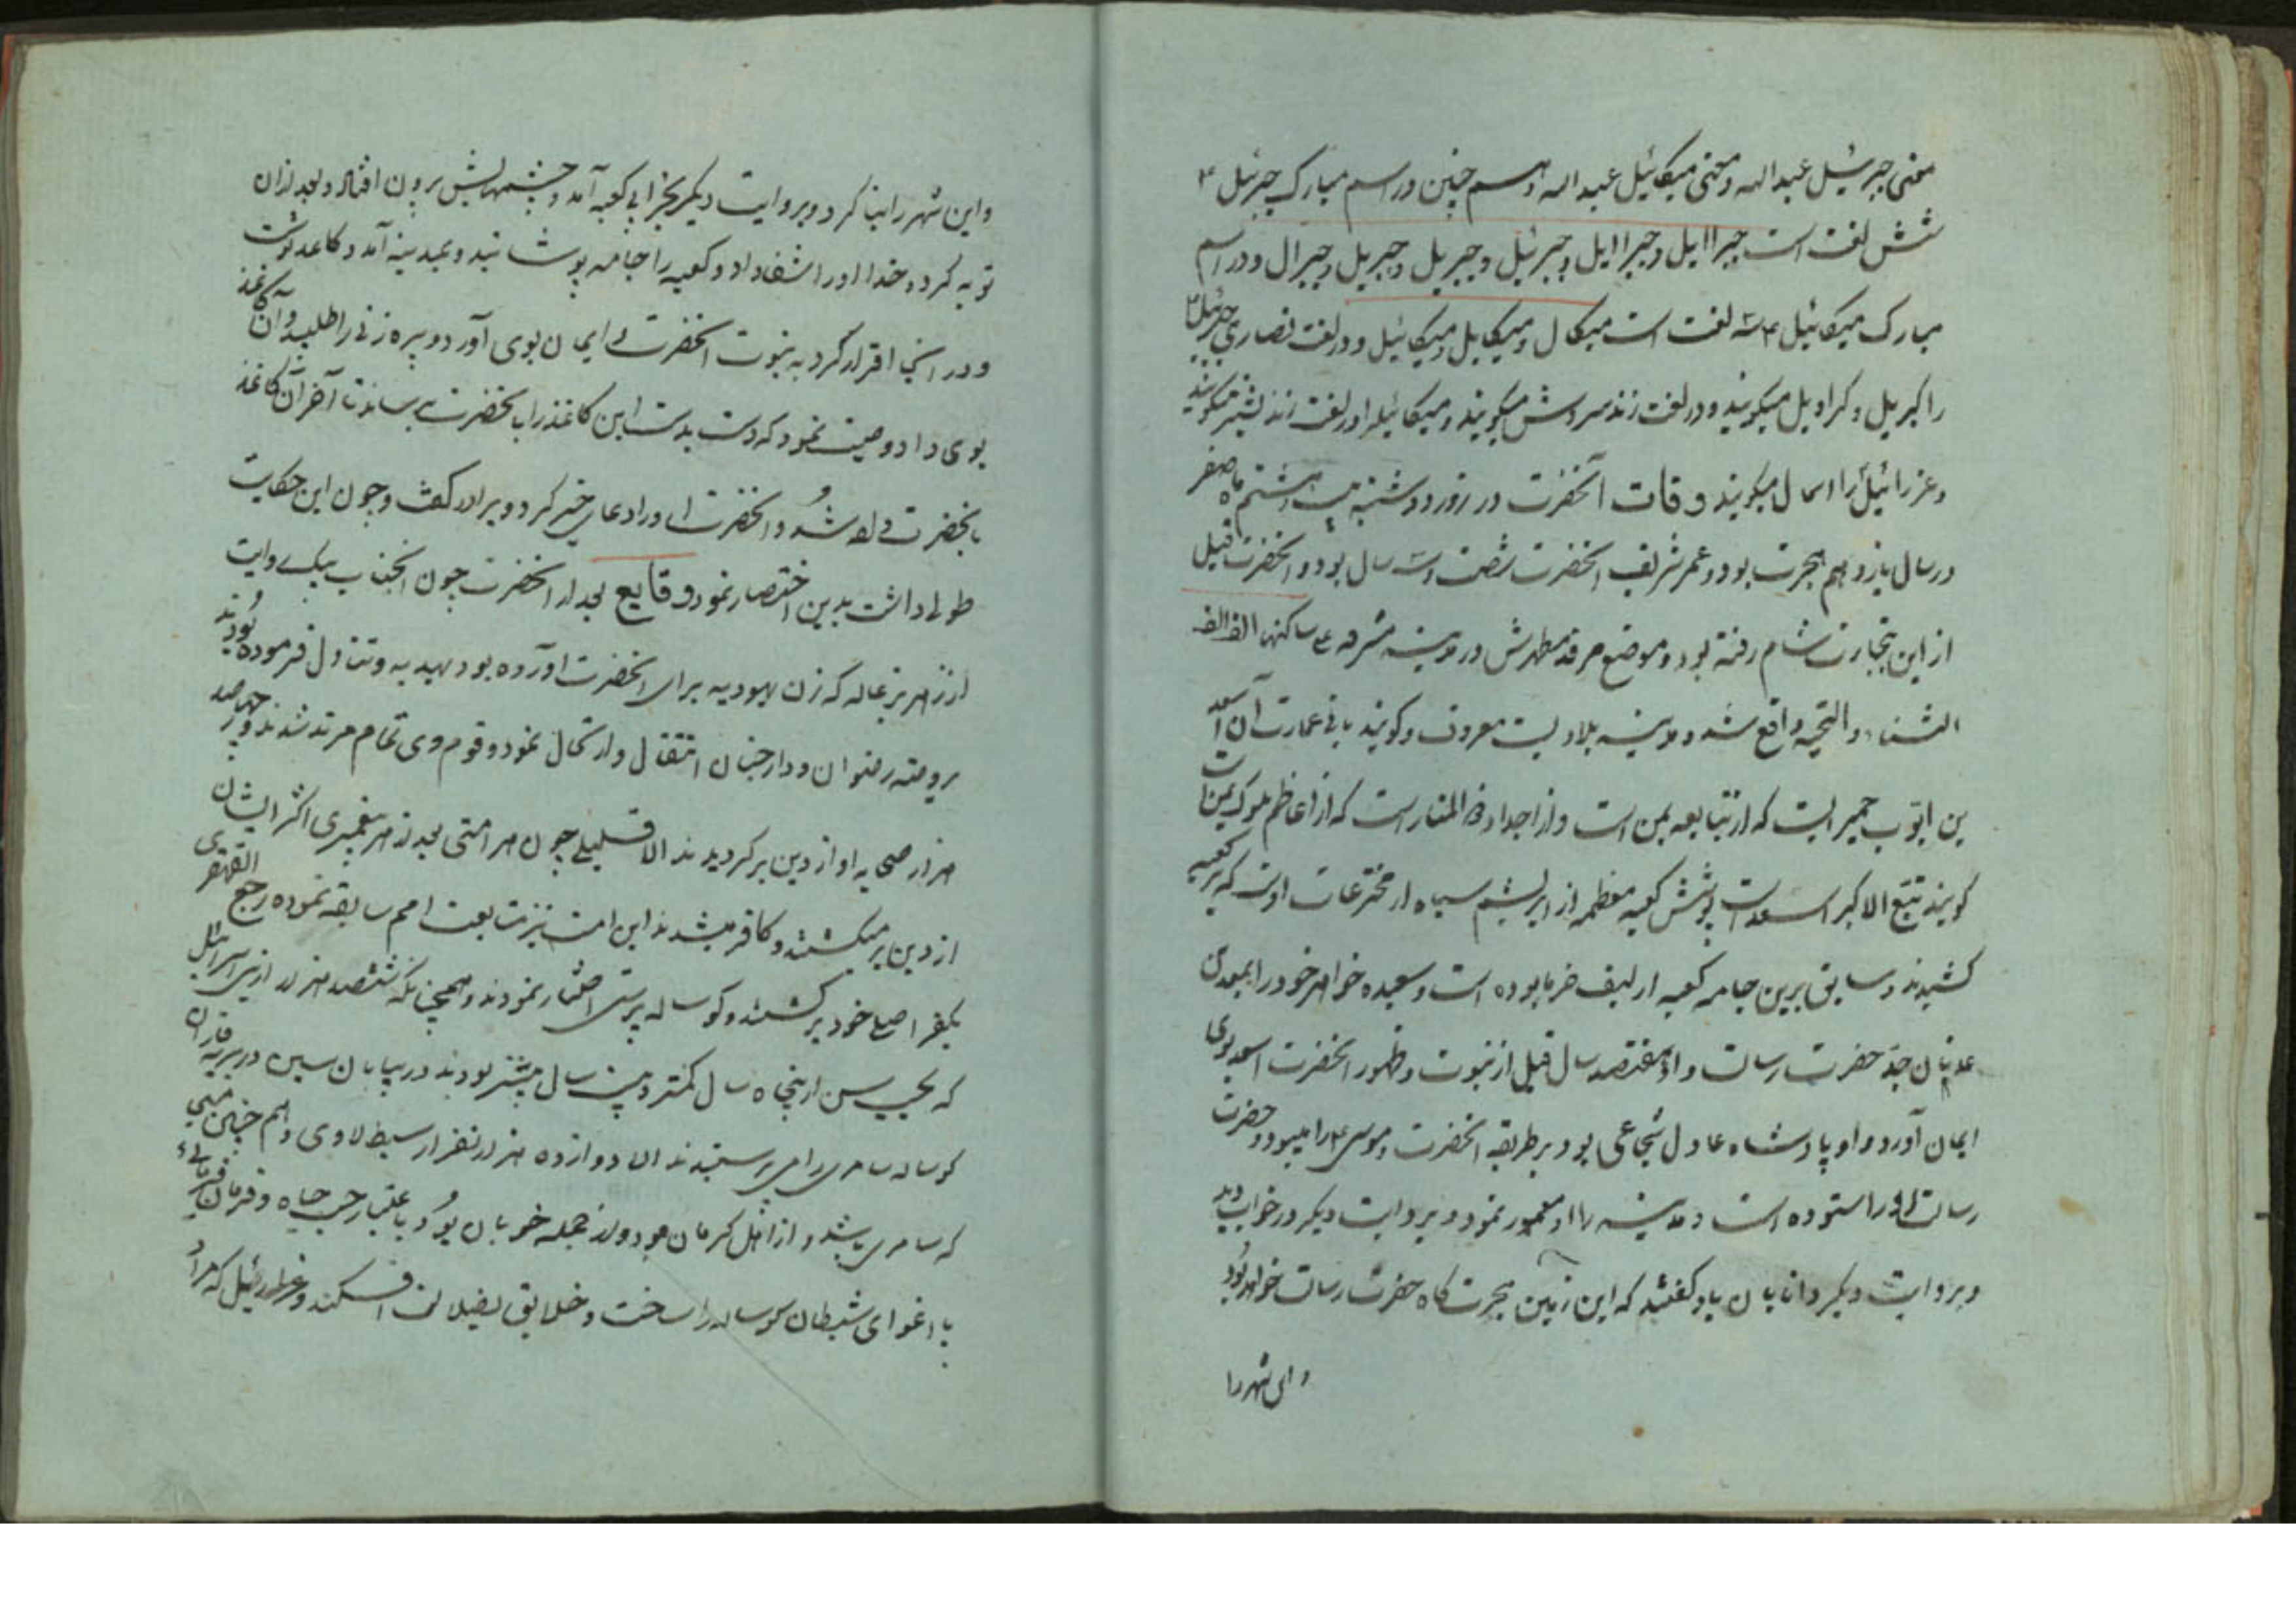 معنی جبرئیل عبدالله و معنی میکائیل عبیدالله و هم چنین در اسم مبارک جبرئیل ۴
شش لغت است جبراایل و جبراایل و جبرئیل و جبریل و جبریل و جبرال و در اسم
مبارک میکائیل ۴ سه لغت است میکال و میکایل و میکائیل و در لغت نصاری جبرئیل
را کبریل و کراویل میکویند و در لغت زند سروش میکویند و میکائیلرا در لغت زند بشتر میکویند
و عزرائیل را اسمال میکویند وفات آنحضرت در روز دوشنبه بیست هشتم ماه صفر
در سال یازدهم هجرت بود و عمر شریف آنحضرت شصت و سه سال بود و آنحضرت قبل
از این بتجارت شام رفته بود و موضع مرقد مطهرش در مدینه مشرفه ع ساکنها الف الف
الثناء و التحیه واقع شد و مدینه بلادیست معروف و کویند بانی عمارت آن اسعد
بن ایوب حمیریست که از تبابعه یمن است و از اجداد ذو المنار است که از اعاظم ملوک یمن است
کویند تبع الاکبر اسعد است پوشش کعبه معظمه از ابریشم سیاه از مخترعات اوست که بر کعبه
کشیدند و سابق برین جامه کعبه از لیف خرما بوده است و سعیده خواهر خود را بمعد بن
عدنان جد حضرت رسالت داد هفتصد سال قبل از نبوت و ظهور آنحضرت اسعد بوی
ایمان آورد و او پادشاه عادل شجاعی بود و بر طریقه آنحضرت موسی ۴ را میبود و حضرت
رسالت او را ستوده است و مدینه را او معمور نمود و بروایت دیکر در خواب دید
و بروایت دیکر دانایان باو کفتند که این زمین هجرت کاه حضرت رسالت خواهد بود
و این شهر را
و این شهر را بنا کرد و بروایت دیکر بخرابی کعبه آمد و چشمهایش برون افتاد و بعد از آن
توبه کرد و خدا او را شفا داد و کعبه را جامه پوشانید و بمدینه آمد و کاغذ نوشت
و در آنجا اقرار کرد به نبوت آنحضرت و ایمان بوی آورد و پیره زنی را طلبید و آن کاغذ
بوی داد وصیت نمود که دست بدست این کاغذ را بآنحضرت برسانند تا آخر آن کاغذ
بآنحضرت داده شد و آنحضرت او را دعای خیر کرد و برادر کفت و چون این حکایت
طولی داشت بدین اختصار نمود وقایع بعد از آنحضرت چون آنجناب بیک روایت
از زهر بزغاله که زن یهودیه برای آنحضرت آورده بود بهدیه و تناول فرموده بودند
بروضه رضوان و دار جنان انتقال و ارتحال نمود و قوم وی تمام مرتد شدند و چهار صد
هزار صحابه او از دین برکردیدند الا قلیلی چون هر امتی بعد از هر پیغمبری اکثر ایشان
از دین برمیکشتند و کافر میشدند این امت نیز متابعت امم سابقه نموده رجع القهقری
بکفر اصلی خود برکشتند و کوساله پرستی اختیار نمودند و همچنانکه ششصد هزار از بنی اسرائیل
که بحسب سن از پنجاه سال کمتر و بیست سال بیشتر بودند در بیابان سین در بریه فاران
کوساله سامری را می پرستیدند الا دوازده هزار نفر از سبط لاوی و هم چنین
که سامری باشد و از اهل کرمان بود و از جمله خوبان بود باعتبار حب جاه و فرمان
باغوای شیطان کوساله را ساخت و خلایق بضلالت افکند و عزازئیل که مراد